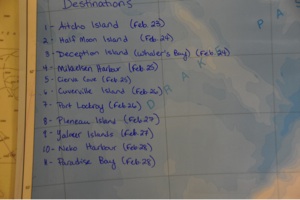 Destinations
1 - Aitcho Island (Feb 24)
2 - Half Moon Island (Feb 24)
3 - Deception Island (Whaler's Bay) (Feb 24)
4 - Mikkelsen Harbour (Feb 25)
5 - Cierva Cove (Feb 25)
6 - Cuverville Island (Feb 26)
7 - Port Lockroy (Feb 26)
8 - Pleneau Island (Feb 27)
9 - Yalour Islands (Feb 27)
10 - Neko Harbour (Feb 28)
11 - Paradise Bay (Feb 28)
P A S
D R A K